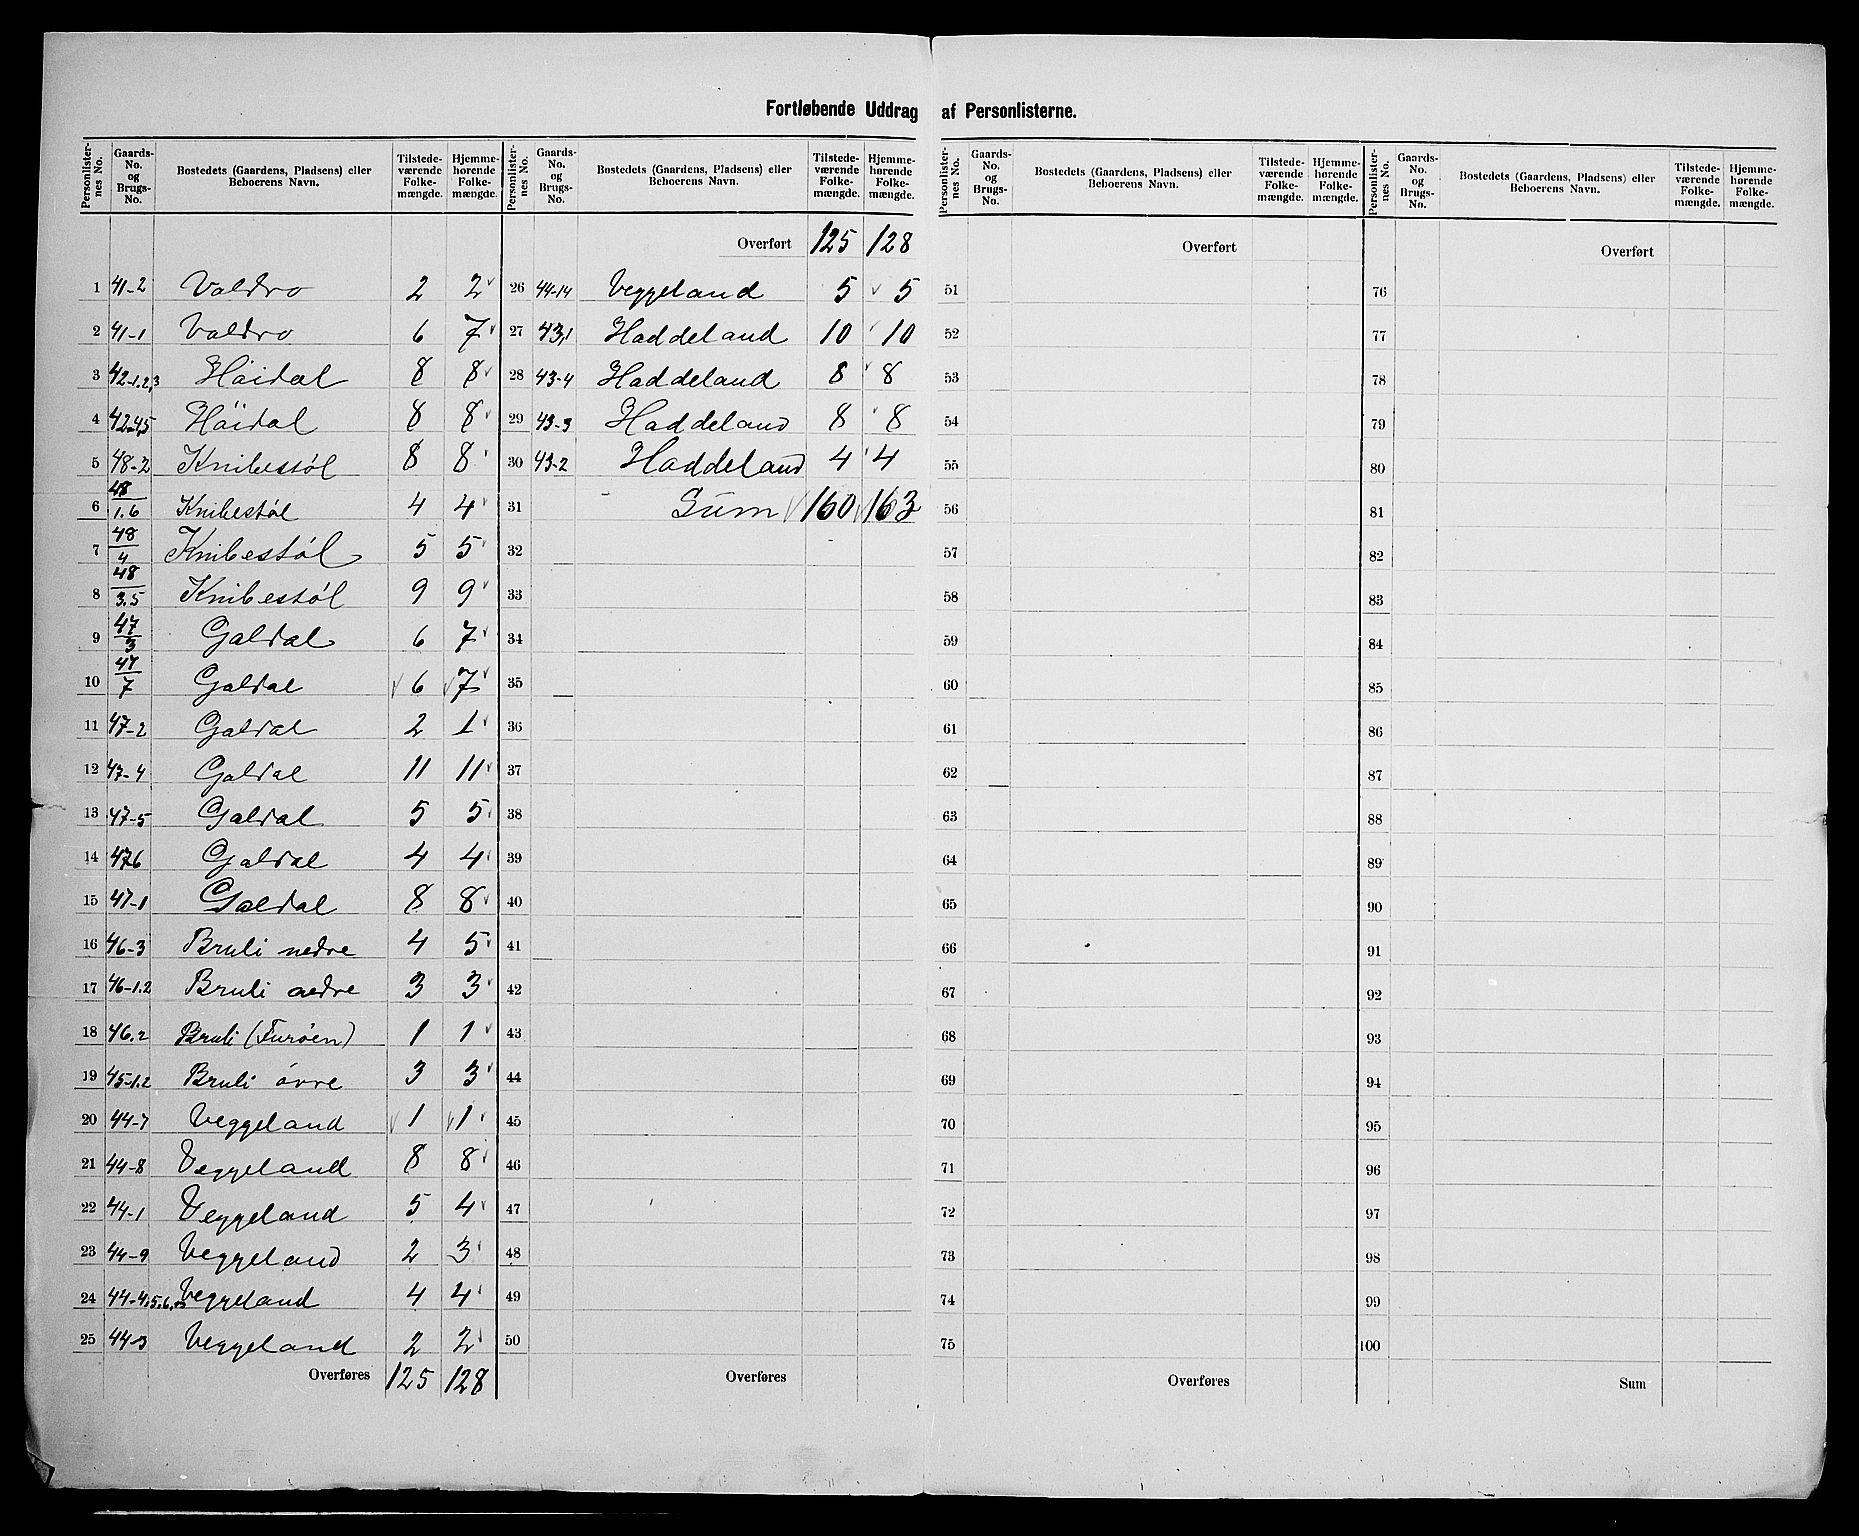 Fortløbende Uddrag af Personlisterne.
Personlister-nes No. | Gaards-No. og Brugs-No. | Bostedets (Gaardens, Pladsens) eller Beboerens Navn. | Tilstede-værende Folke-mængde. | Hjemme-hørende Folke-mængde.
1 41-2 Valdro 2 2
2 41-1 Valdro 6 7
3 42-1.2,3 Høidal 8 8
4 42-4,5 Høidal 8 8
5 48-2 Knibestøl 8 8
6 48/1.6 Knibestøl 4 4
7 48/4 Knibestøl 5 5
8 48/3.5 Knibestøl 9 9
9 47/3 Galdal 6 7
10 47/7 Galdal 6 7
11 47-2 Galdal 2 1
12 47-4 Galdal 11 11
13 47-5 Galdal 5 5
14 47 6 Galdal 4 4
15 47-1 Galdal 8 8
16 46-3 Bruli nedre 4 5
17 46-1.2 Bruli nedre 3 3
18 46.2 Bruli (Furøen) 1 1
19 45-1.2 Bruli øvre 3 3
20 44-7 Veggeland 1 1
21 44-8 Veggeland 8 8
22 44-1 Veggeland 5 4
23 44-9 Veggeland 2 3
24 44-4.5.6. Veggeland 4 4
25 44-3 Veggeland 2 2
Overføres 125 128
Personlister-nes No. | Gaards-No. og Brugs-No. | Bostedets (Gaardens, Pladsens) eller Beboerens Navn. | Tilstede-værende Folke-mængde. | Hjemme-hørende Folke-mængde.
Overført 125 128
26 44-14 Veggeland 5 5
27 43,1 Haddeland 10 10
28 43-4 Haddeland 8 8
29 43-3 Haddeland 8 8
30 43-2 Haddeland 4 4
31 Sum 160 163
32
33
34
35
36
37
38
39
40
41
42
43
44
45
46
47
48
49
50
Overføres
Personlister-nes No. | Gaards-No. og Brugs-No. | Bostedets (Gaardens, Pladsens) eller Beboerens Navn. | Tilstede-værende Folke-mængde. | Hjemme-hørende Folke-mængde.
Overført
51
52
53
54
55
56
57
58
59
60
61
62
63
64
65
66
67
68
69
70
71
72
73
74
75
Overføres
Personlister-nes No. | Gaards-No. og Brugs-No. | Bostedets (Gaardens, Pladsens) eller Beboerens Navn. | Tilstede-værende Folke-mængde. | Hjemme-hørende Folke-mængde.
Overført
76
77
78
79
80
81
82
83
84
85
86
87
88
89
90
91
92
93
94
95
96
97
98
99
100
Sum